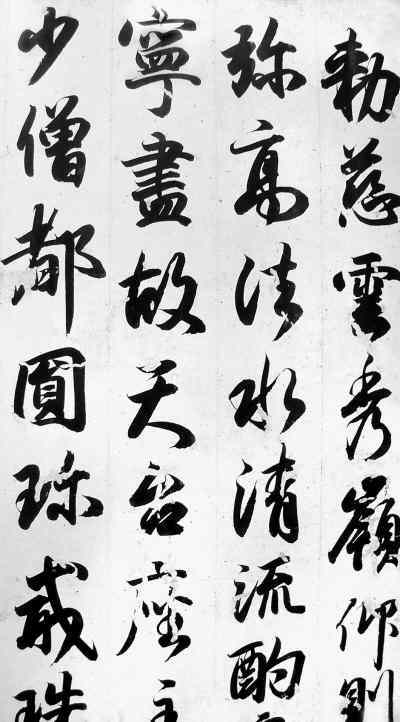 勅慈雲秀嶺仰則
弥高法水清流酌
寧盡故天台座主
少僧都圓珎戒珠